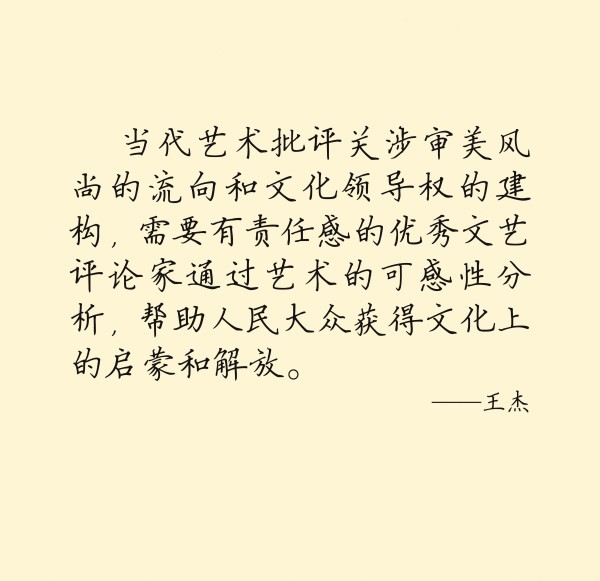 当代艺术批评关涉审美风
尚的流向和文化领导权的建
构，需要有责任感的优秀文艺
评论家通过艺术的可感性分
析，帮助人民大众获得文化上
的启蒙和解放。
——王杰